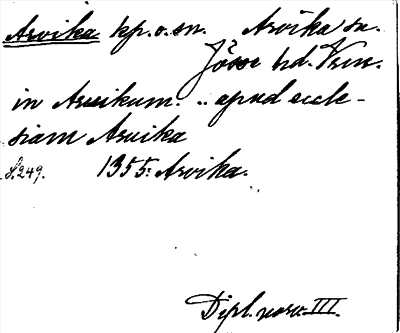 Arvika kp.o.sn. Arvika sn.
Jösse hd. Vrm.
in Aruikum. .. apud eccle-
siam Aruika
S.249. 1355: Arvika.
Dipl. norv. III.